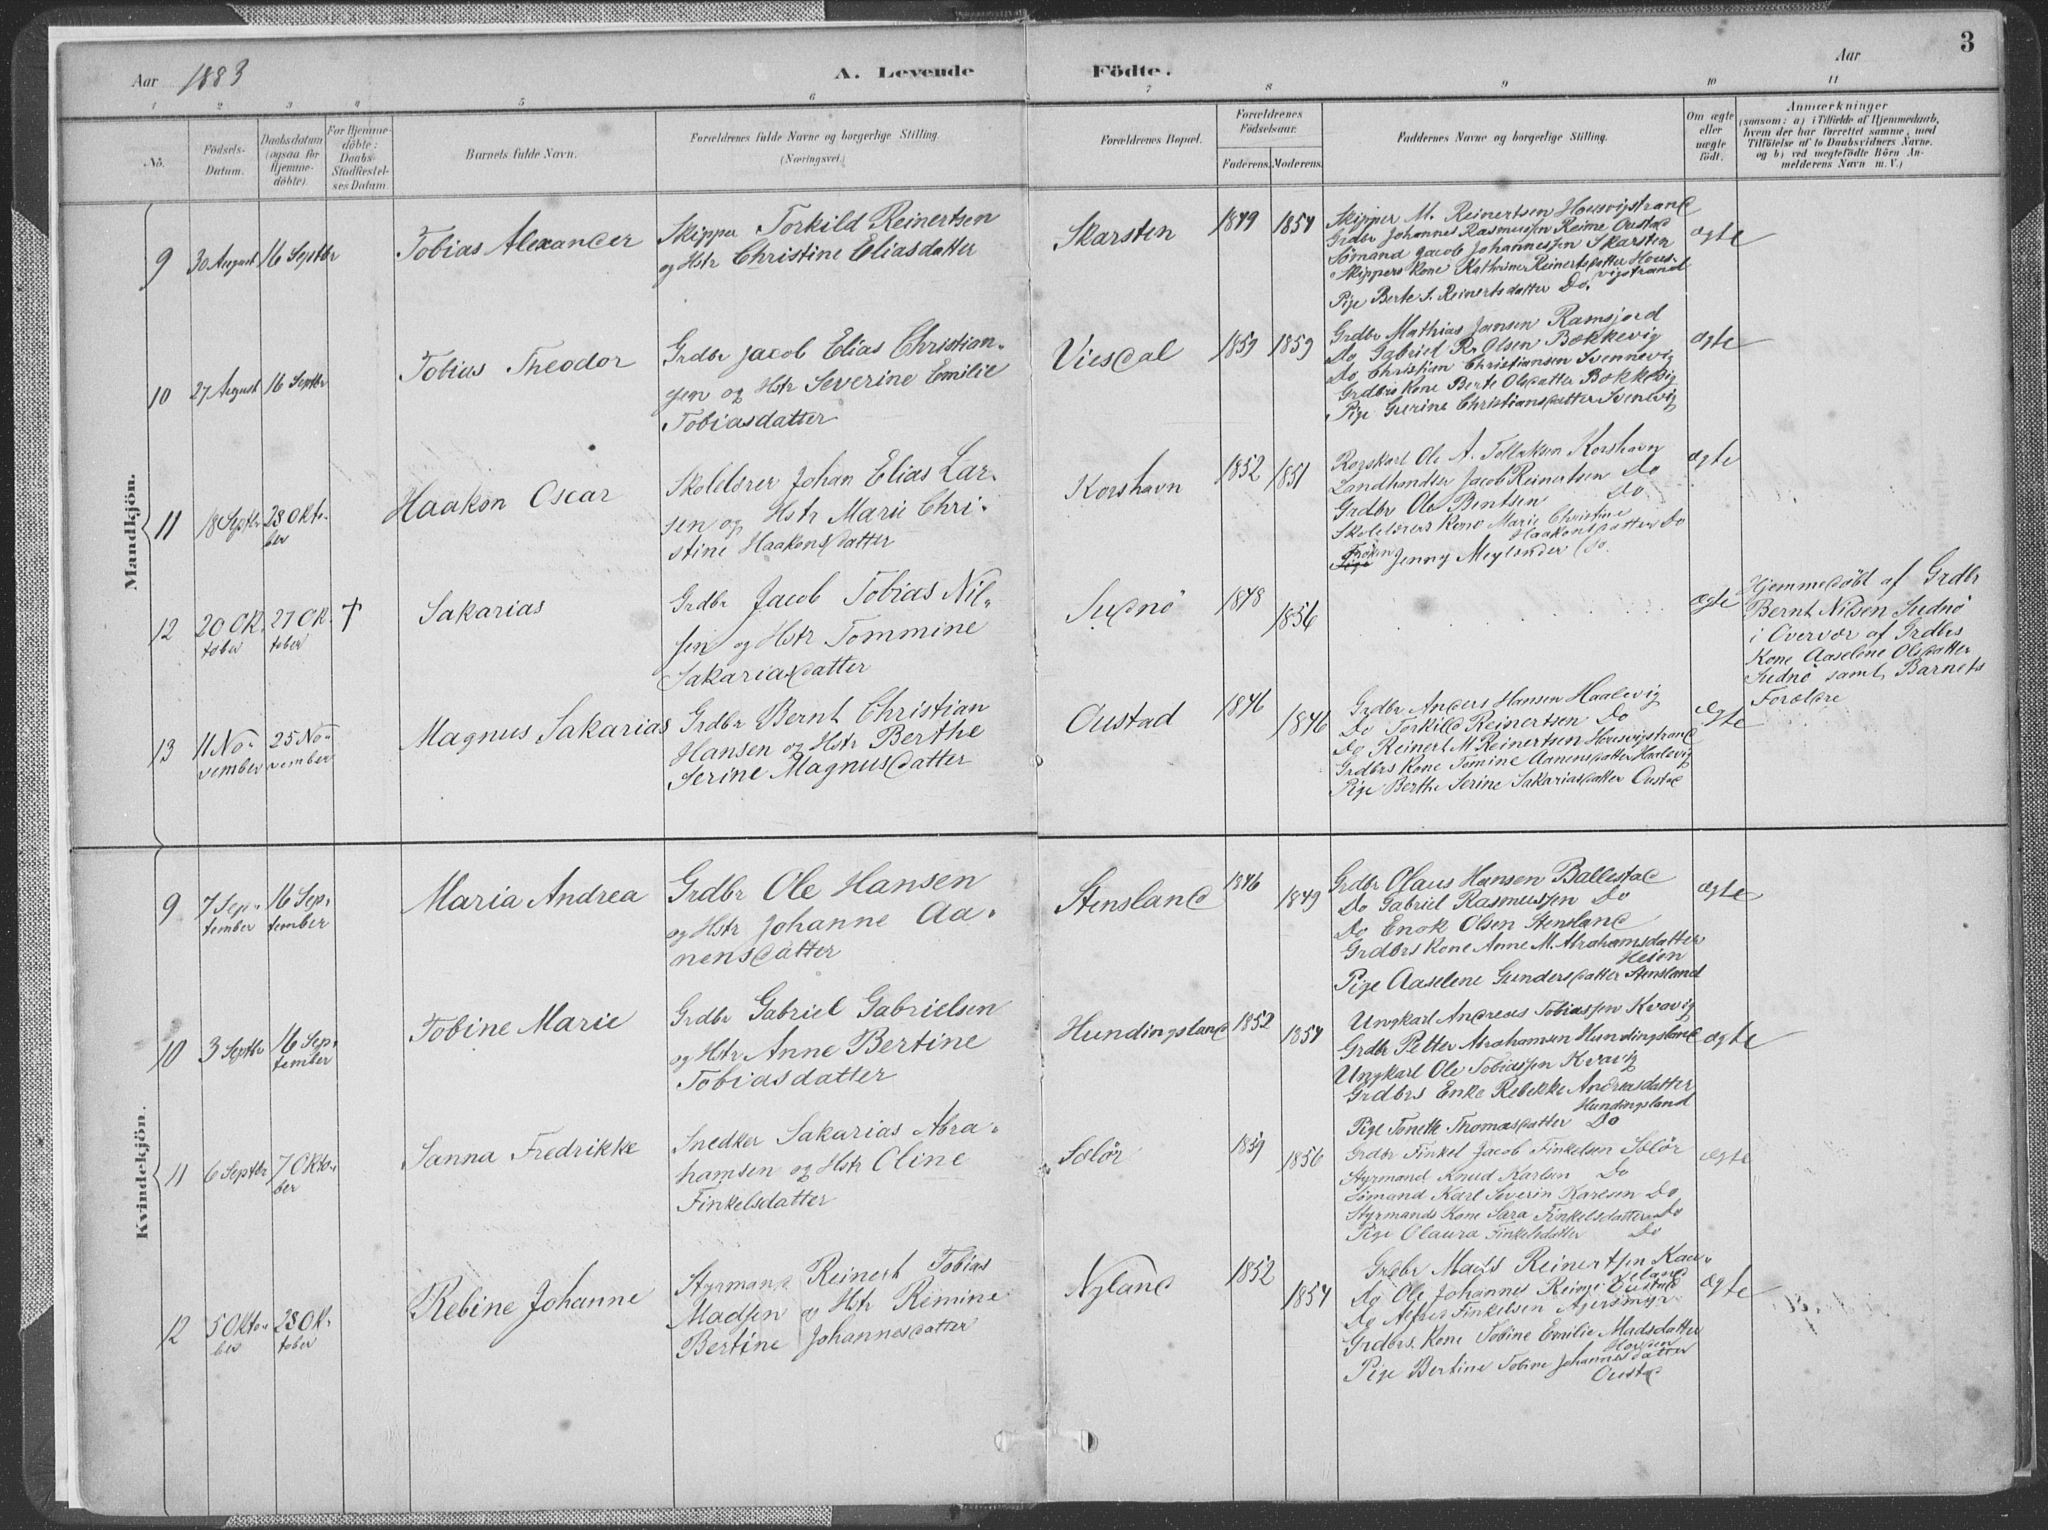 3
Aar 1883
A. Levende Födte.
Aar
1 2 3 4 5 6 7 8 9 10 11
Nö.
Födsels-Datum.
Daabsdatum (ogsaa for Hjemmedöbte).
For Hjemmedöbte: Daabs-Stadfæstelses Datum.
Barnets fulde Navn.
Forældrenes fulde Navne og borgerlige Stilling. (Næringsvei.)
Forældrenes Bopæl.
Forældrenes Födselsaar.
Faderens. Moderens.
Faddernes Navne og borgerlige Stilling.
Om ægte eller uægte födt.
Anmærkninger
(saasom: a) i Tilfælde af Hjemmedaab,
hvem der har forrettet samme, med
Tilföielse af to Daabsvidners Navne.
og b) ved uægtefödte Börn Anmelderens Navn m. V.)
Mandkjön.
9 30 August 16 Septbr
Tobias Alexander
Skipper Torkild Reinertsen
og Hstr Christine Eliasdatter
Skarsten 1849 1854
Skipper M. Reinertsen Housvigstrand
Grdbr Johannes Rasmussen Reime Oustad
Sømand Jacob Johannessen Skarsten
Skippers Kone Kathrine Reinertsdatter Housvigstrand
Pige Berte S. Reinertsdatter Do.
ægte
10 27 August 16 Septbr
Tobias Theodor
Grdbr Jacob Elias Christian-
sen og Hstr Severine Emilie
Tobiasdatter
Viesdal 1859 1859
Grdbr Mathias Jansen Ramsjord
Do Gabriel R. Olsen Bækkevig
Do Christian Christiansen Svennevig
Grdbrs Kone Berte Olsdatter Bækkevig
Pige Gurine Christiansdatter Svenevig
ægte
11 18 Septbr 28 Oktober
Haakon Oscar
Skolelærer Johan Elias Lar-
sen og Hstr Marie Chri-
stine Haakonsdatter
Korshavn 1852 1851
Ole A. Tollaksen Korshavn
Landhandler Jacob Reinertsen Do
Grdbr Ole Bentsen Do
Skolelærers Kone Marie Christine
Haakonsdatter Do
Frøken Jenny Meylænder Do.
ægte
12 20 Oktober 27 Oktober †
Sakarias
Grdbr Jacob Tobias Nil-
sen og Hstr Tommine
Sakariasdatter
Sudnö 1848 1856
ægte
Hjemmedöbt af Grdbr
Bernt Nilsen Sudnö
i Overvær af Grdbrs
Kone Aaselene Olsdatter
Sudnö samt Barnets
Forældre
13 11 November 25 November
Magnus Sakarias
Grdbr Bernt Christian
Hansen og Hstr Berthe
Serine Magnusdatter
Oustad 1846 1846
Grdbr Anders Hansen Haalevig
Do Torkild Reinertsen Do
Do Reinert M Reinertsen Housvigstrand
Grdbrs Kone Tomine Aanensdatter Haalevig
Pige Berthe Serine Sakariasdatter Oustad
ægte
Kvindekjön.
9 7 September 16 September
Maria Andrea
Grdbr Ole Hansen
og Hstr Johanne Aa-
nensdatter
Stensland 1846 1849
Grdbr Olaus Hansen Ballestad
Do Gabriel Rasmussen Do
Do Enok Olsen Stensland
Grdbrs Kone Anne M. Abrahamsdatter
Pige Aaselene Gundersdatter Stensland
ægte
10 3 Septbr 16 September
Tobine Marie
Grdbr Gabriel Gabrielsen
og Hstr Anne Bertine
Tobiasdatter
Hundingsland 1852 1854
Ungkarl Andreas Tobiassen Kvavig
Grdbr Petter Abrahamsen Hundingsland
Ungkarl Ole Tobiassen Kvavig
Grdbrs Enke Rebekke Andreasdatter
Hundingsland
Pige Tonette Thomasdatter Do
ægte
11 6 Septbr 7 Oktober
Sanna Fredrikke
Snedker Sakarias Abra-
hamsen og Hstr Oline
Finkelsdatter
Sælör 1859 1856
Grdbr Finkel Jacob Finkelsen Sælör
Styrmand Knud Karlsen Do
Sømand Karl Severin Karlsen Do
Styrmands Kone Sara Finkelsdatter Do
Pige Olaura Finkelsdatter Do
ægte
12 5 Oktober 28 Oktober
Rebine Johanne
Styrmand Reinert Tobias
Madssen og Hstr Remine
Bertine Johannesdatter
Nyland 1852 1854
Grdbr Mads Reinertsen
Do Ole Johannes Reime Oustad
Do Alfred Finkelsen Agersmyr
Grdbrs Kone Tobine Emilie Madsdatter
Pige Bertine Tobine Johannesdatter
Oustad
ægte